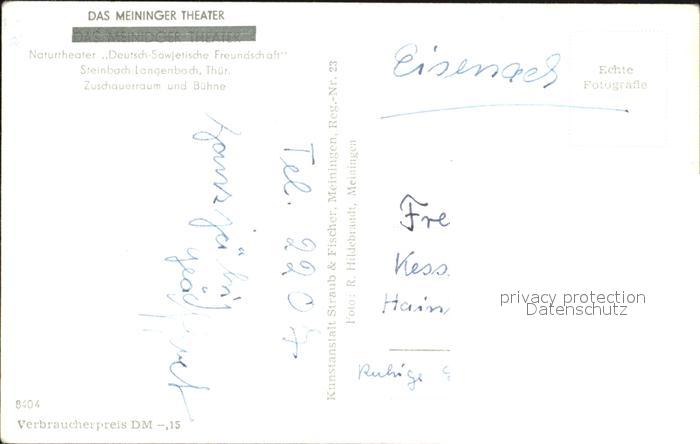 DAS MEININGER THEATER
DAS MEINIDGER THEATER
Naturtheater „Deutsch-Sowjetische Freundschaft"
Steinbach Langenbach, Thür.
Zuschauerraum und Bühne
Tel. 220
Kunstanstalt Straub & Fischer, Meiningen, Reg.-Nr. 23
Foto: R. Hildebrandt, Meiningen
Eisenach
Echte
Fotografie
Fre
Kess
Hain
Ruhige
privacy protection
Datenschutz
8404
Verbraucherpreis DM -,15